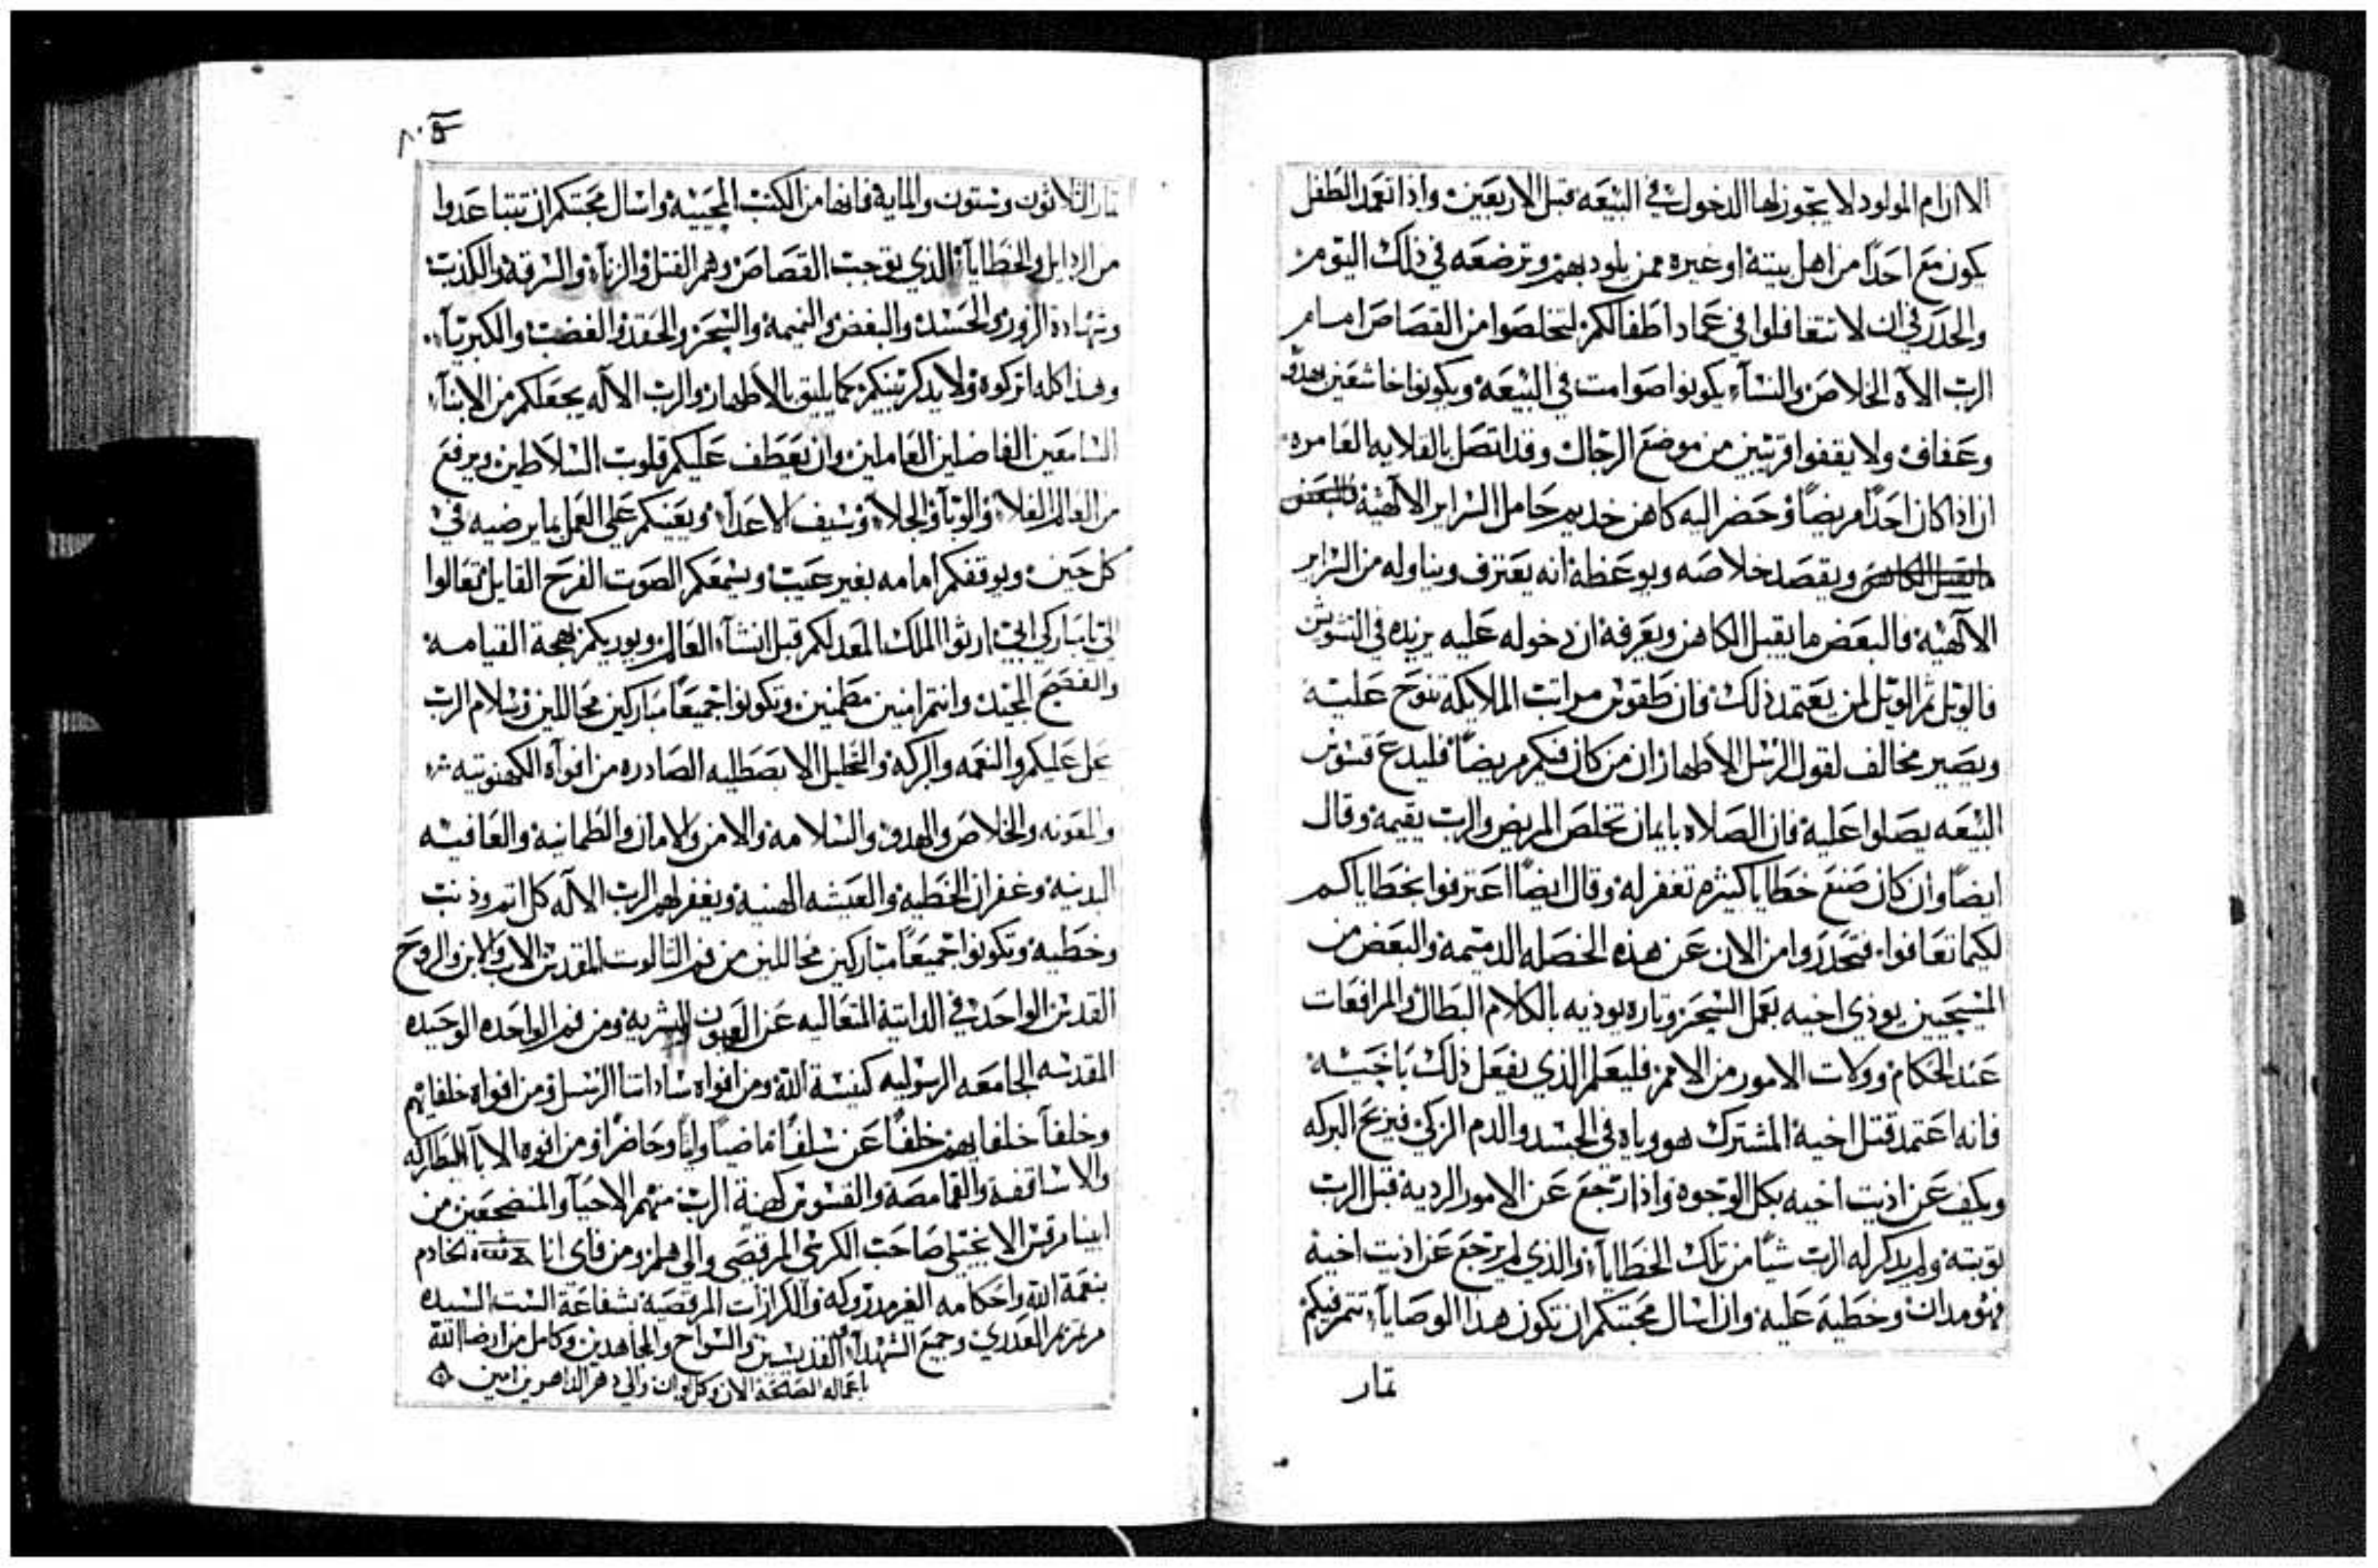 الا ان ام المولود لا يجوز لها الدخول في البيعه قبل الاربعين واذا تعمد الطفل
يكون مع احدا من اهل بيته او غيره ممن يلود بهم وترضعه في ذلك اليوم
والحدر في ان لا تتغافلوا في عماد اطفالكم لتخلصوا من القصاص امام
الرب الاه الخلاص والنسآء يكونوا صوامت في البيعه ويكونوا خاشعين بهدو
وعفاف ولا يقفوا قريبين من موضع الرجال وقد اتصل بالقلايه العامره
ان اذا كان احدا مريضا وحضر اليه كاهن خديم حامل السراير الالهيه
ويقصد خلاصه ويوعظه انه يعترف ويناوله من السراير
الالهيه فالبعض ما يقبل الكاهن ويعرفه ان دخوله عليه يزيده في التشويش
فالويل ثم الويل لمن يعتمد ذلك فان طقوس مراتب الملايكه تنوح عليه
ويصير مخالف لقول الرسل الاطهار ان من كان فيكم مريضا فليدع قسوس
البيعه يصلوا عليه فان الصلاه بايمان تخلص المريض والرب يقيمه وقال
ايضا وان كان صنع خطايا كثيره تغفر له وقال ايضا اعترفوا بخطاياكم
لكيما تعافوا فتحدروا من الان عن هذه الخصله الدميمه والبعض من
المسيحيين يودي اخيه بعمل السحر وتاره يوديه بالكلام البطال والمرافعات
عند الحكام وولات الامور من الامم فليعلم الذي يفعل ذلك باخيه
فانه اعتمد قتل اخيه المشترك هو وياه في الجسد والدم الزكي فيربح البركه
ويكف عن اديت اخيه بكل الوجوه واذا رجع عن الامور الرديه قبل الرب
توبته ولم يدكر له الرب شيا من تلك الخطايآ والذي لم يرجع عن اديت اخيه
فهو مدان وخطيه عليه وان اسال محبتكم ان تكون هدا الوصايآ تتمر فيكم
تمار
تمار الثلاثون وستون والمايه فانها من الكتب المحييه واسال محبتكم ان تتباعدوا
من الردايل والخطايآ الذي توجب القصاص وهم القتل والزنآ والسرقه والكذب
وشهادة الزور والحسد والبغض والنميمه والسحر والحقد والغضب والكبريآ
وهذا كله اتركوه ولا يدكر بينكم كما يليق بالاطهار والرب الاله يجعلكم من الابنآ
السامعين الفاضلين العاملين وان يعطف عليكم قلوب السلاطين ويرفع
من العالم الغلا والوبا والجلا وسيف الاعدآ ويعينكم علي العمل بما يرضيه في
كل حين ويوقفكم امامه بغير عيب ويسمعكم الصوت الفرح القايل تعالوا
الي يا مباركي ابي ارثوا الملك المعد لكم قبل انشآء العالم ويوريكم بهجة القيامه
والفصح المجيد وانتم امنين مطمنين وتكونوا جميعا مباركين محاللين وسلام الرب
يحل عليكم والنعمه والبركه والتحليل الصادره من افواه الكهنوتيه
والمعونه والخلاص والهدو والسلامه والامن والامان والطمانيه والعافيه
البدنيه وغفران الخطيه والعيشه الهنيه ويغفر لهم الرب الاله كل اتم وذنب
وخطيه وتكونوا جميعا مباركين محاللين من فم التالوت المقدس الاب والابن والروح
القدس الواحد في الداتيه المتعاليه عن العيون البشريه ومن فم الواحده الوحيده
المقدسه الجامعه الرسوليه كنيسة الله ومن افواه ساداتنا الرسل ومن افواه خلفايهم
وخلفآ خلفايهم خلفا عن سلفا ماضيا واتيا وحاضرا ومن افوه الابآ البطاركه
والاساقفه والقمامصه والقسوس كهنة الرب منهم الاحيآ والمنضجعين من
ابينا مرقس الانجيلي صاحب الكرسي المرقصي والي هلم ومن فاي انا الخادم
بنعمة الله واحكامه الغير مدروكه والكرازات المرقصيه بشفاعة الست السيده
مرتمريم العدري وجميع الشهدآ والقديسين والسواح والمجاهدين وكامل من ارضا الله
باعماله الصالحة الان وكل اوان والي دهر الداهرين امين